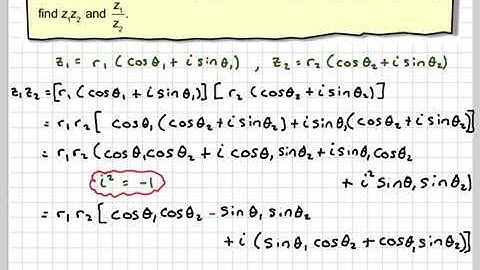 find z₁z₂ and z₁/z₂.
z₁ = r₁ (cosθ₁ + i sinθ₁) , z₂ = r₂ (cosθ₂ + i sinθ₂)
z₁z₂ = [r₁(cosθ₁ + i sinθ₁)] [r₂ (cosθ₂ + i sinθ₂)]
= r₁r₂ [ cosθ₁(cosθ₂ + i sinθ₂) + i sinθ₁(cosθ₂ + i sinθ₂)]
= r₁r₂ (cosθ₁cosθ₂ + i cosθ₁ sinθ₂ + i sinθ₁ cosθ₂
i² = -1 + i² sinθ₁ sinθ₂)
= r₁r₂ [cosθ₁cosθ₂ - sinθ₁ sinθ₂
+ i (sinθ₁ cosθ₂ + cosθ₁ sinθ₂)]